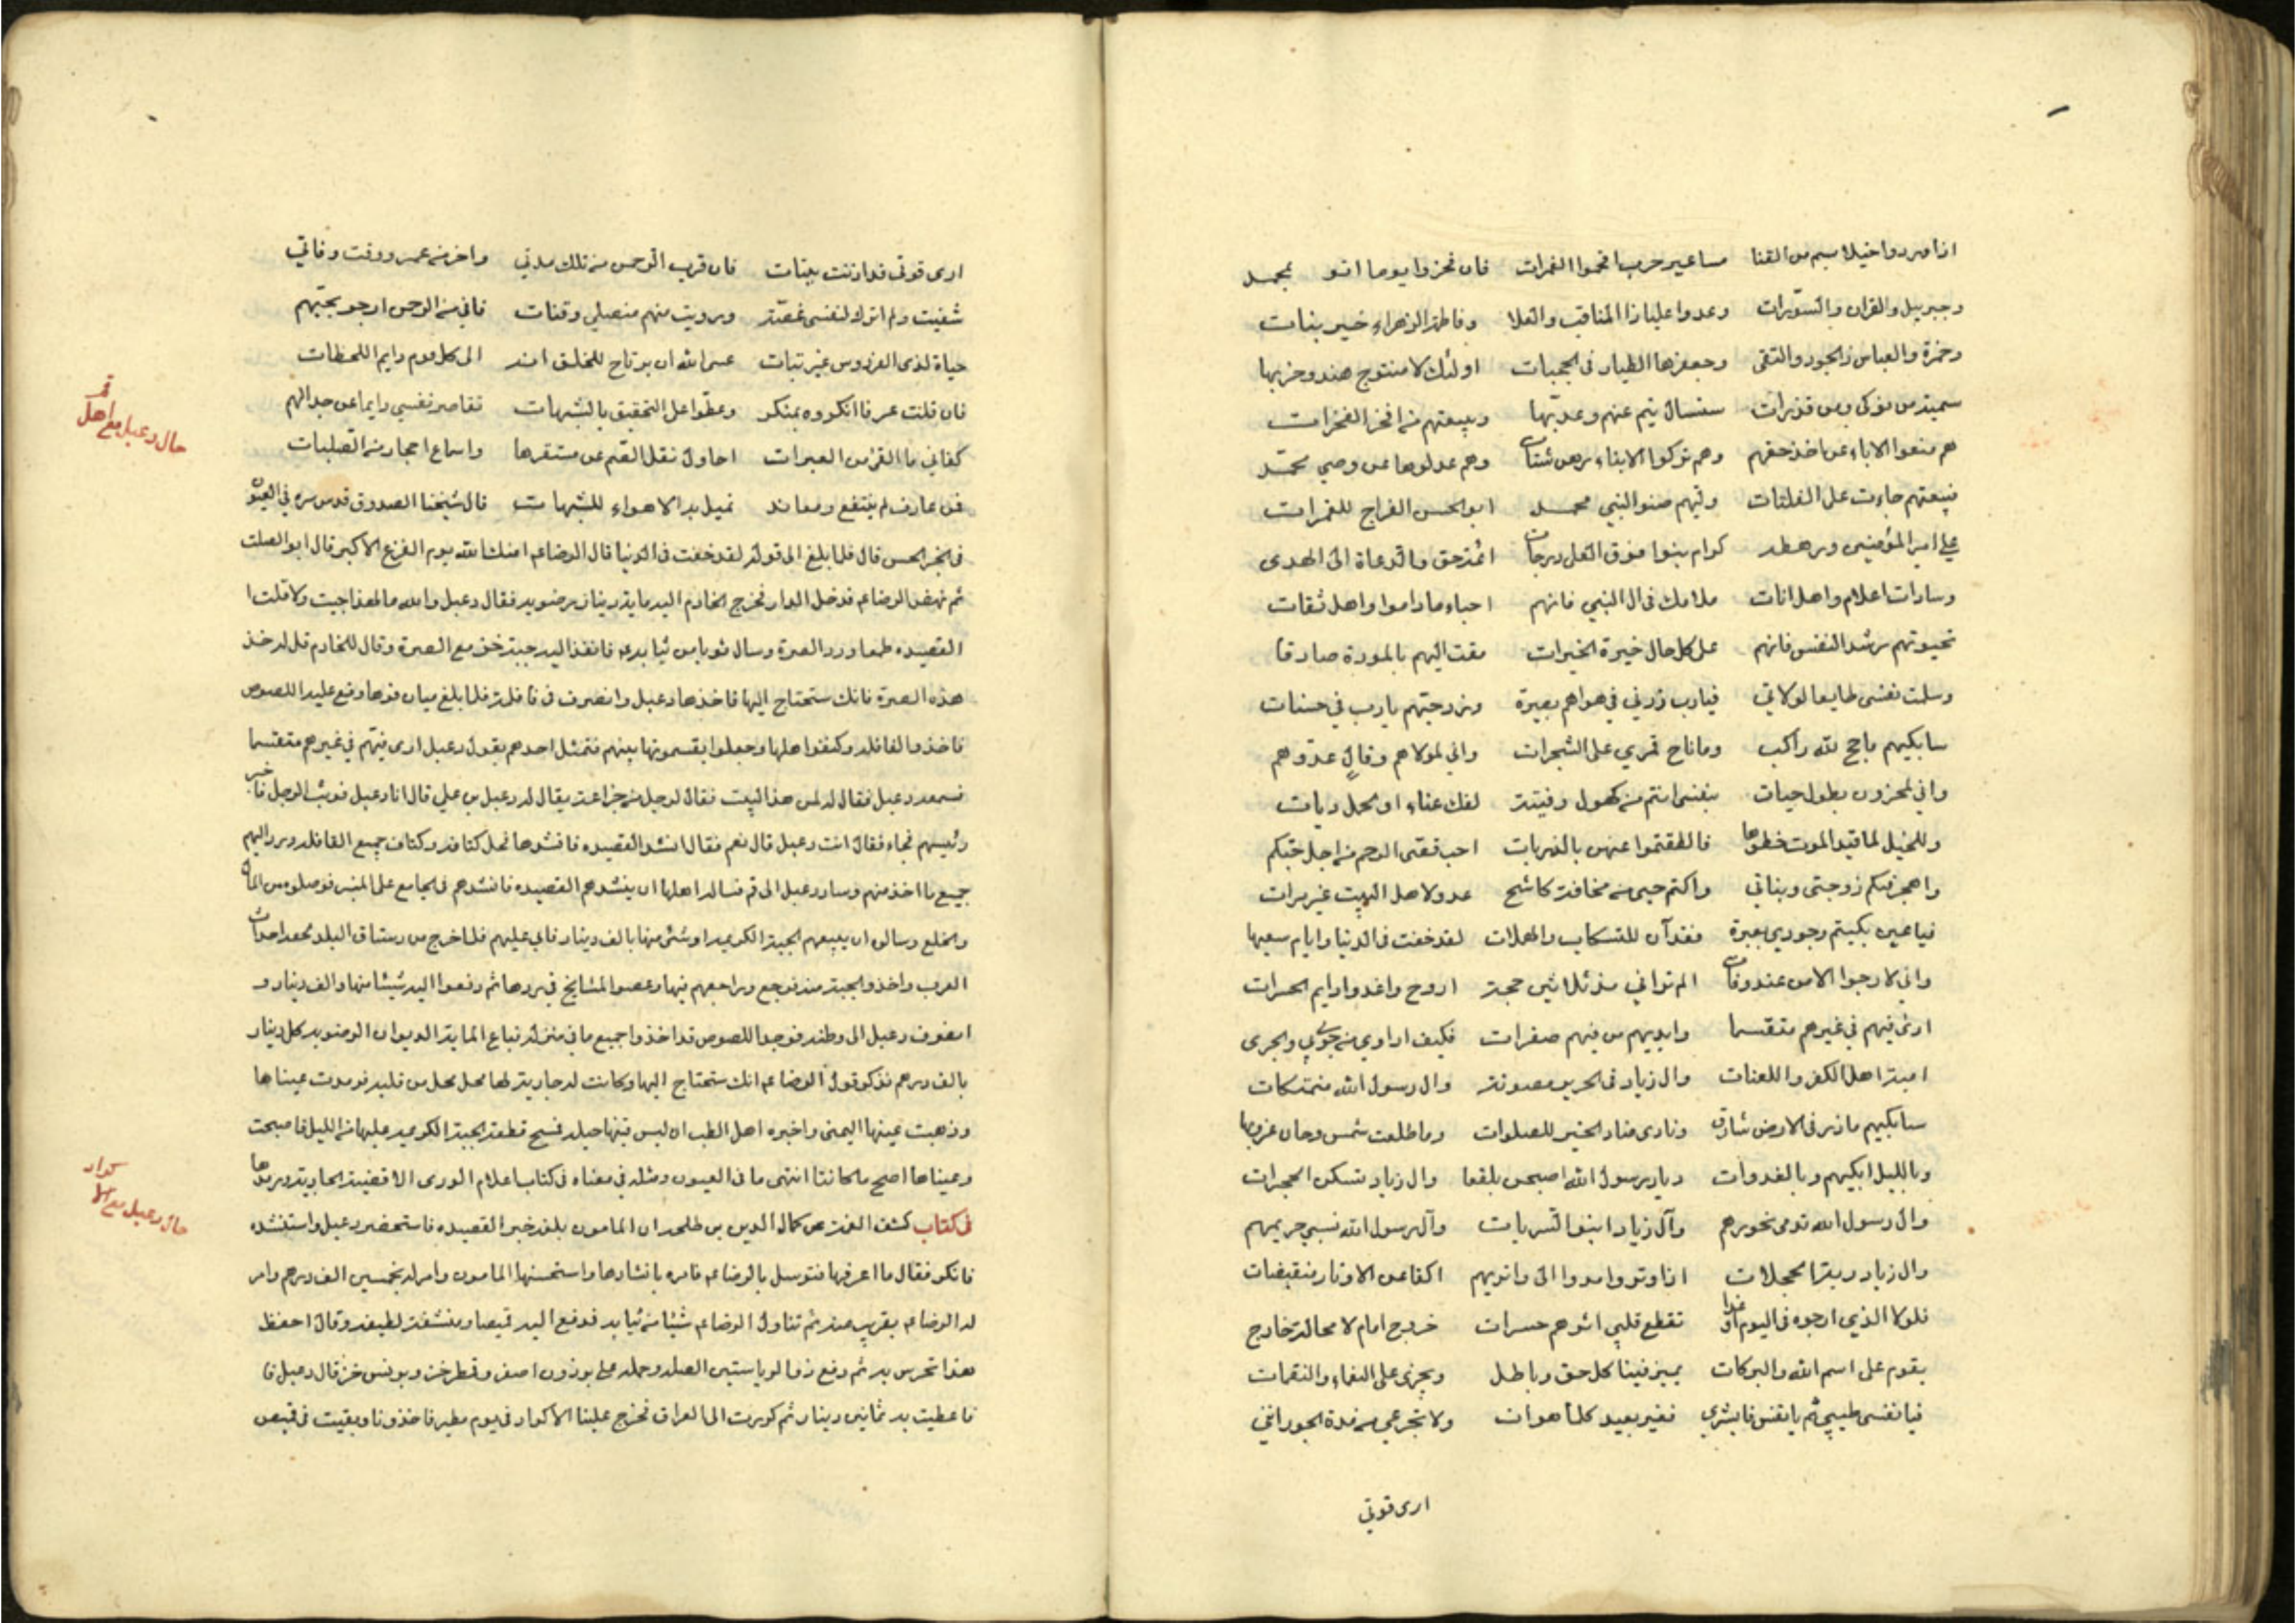 اذا وردوا خيلا بسم من القنا مساعير حرب اقحموا الغمرات فان فخروا يوما اتوا بمحمد
وجبريل والقران والسورات وعدوا عليا ذا المناقب والعلا وفاطمة الزهراء خير بنات
وحمزة والعباس ذا الجود والتقى وجعفرها الطيار في الحجبات اولئك لا منتوج هند وحزبها
سمية من نوكى ومن قذرات ستسأل تيم عنهم وعديها وبيعتهم من افجر الفجرات
هم منعوا الاباء عن اخذ حقهم وهم تركوا الابناء رهن شتات وهم عدلوها عن وصي محمد
فبيعتهم جاءت على الفلتات وليهم صنو النبي محمد ابو الحسن الفراج للغمرات
علي امير المؤمنين ورهطه كرام بنوا فوق العلى درجات ائمة حق والدعاة الى الهدى
وسادات اعلام واهل اناة ملامك في ال النبي فانهم احباء ما داموا واهل ثقات
تحيرتهم رشد النفس فانهم على كل حال خيرة الخيرات مقت اليهم بالمودة صادقا
وسلمت نفسي طايعا لولاتي فيارب زدني في هواهم بصيرة وزد حبهم يارب في حسنات
سابكيهم ما حج لله راكب وما ناح قمري على الشجرات واني لمولاهم وقال عدوهم
واني لمحزون بطول حيات بنفسي انتم من كهول وفتية لفك عناء او لحمل ديات
وللخيل لما قيد الموت خطوها فاطلقتموا عنهن بالذربات احب قصي الرحم من اجل حبكم
واهجر فيكم زوجتي وبناتي واكتم حبي من مخافة كاشح عدو لاهل البيت غير مرات
فيا عين بكيهم وجودي بعبرة فقد آن للتسكاب والهملات لقد خفت في الدنيا وايام سعيها
واني لارجوا الامن عند وفات الم تر اني مذ ثلاثين حجة اروح واغدوا دايم الحسرات
ارى فيهم في غيرهم متقسما وايديهم من فيهم صفرات فكيف اداوي من جوى بي والجوى
امية اهل الكفر واللعنات وال زياد في الحرير مصونة وال رسول الله منهتكات
سابكيهم ما ذر في الارض شارق ونادى مناد الخير للصلوات وما طلعت شمس وحان غروبها
وبالليل ابكيهم وبالغدوات ديار رسول الله اصبحن بلقعا وال زياد تسكن الحجرات
وال رسول الله تدمى نحورهم وآل زياد امنوا السربات وآل رسول الله تسبي حريمهم
وال زياد ربة الحجلات اذا وتروا مدوا الى واتريهم اكفا عن الاوتار منقبضات
فلولا الذي ارجوه في اليوم او غدا تقطع قلبي اثرهم حسرات خروج امام لا محالة خارج
يقوم على اسم الله والبركات يميز فينا كل حق وباطل ويجزى على النعماء والنقمات
فيا نفس طيبي ثم يا نفس فابشري فغير بعيد كلما هوات ولا تجزعي من مدة الجور انني
ارى قوتي
ارى قوتي قد اذنت ببتات فان قرب الرحمن من تلك مدتي واخر من عمر ووقت وفاتي
شفيت ولم اترك لنفسي غصة ورويت منهم منصلي وقنات فاني من الرحمن ارجو بحبهم
حياة لدى الفردوس غير تبات عسى الله ان يرتاح للخلق انه الى كل قوم دايم اللحظات
فان قلت عرفا انكروه بمنكر وغطوا على التحقيق بالشبهات تقاصر نفسي دايما عن جدالهم
كفاني ما القى من العبرات احاول نقل الصم عن مستقرها واسماع احجار من الصلبات
فمن عارف لم ينتفع ومعاند تميل به الاهواء للشبهات قال شيخنا الصدوق قدس سره في العيون
في الخبر الحسن قال فلما بلغ الى قوله لقد خفت في الدنيا قال الرضا ع امنك الله يوم الفزع الاكبر قال ابو الصلت
ثم نهض الرضا ع فدخل الدار فخرج الخادم اليه بماية دينار رضوية فقال دعبل والله ما لهذا جيت ولا قلت
القصيده طمعا ورد الصرة وسال ثوبا من ثيابه فانفذ اليه جبة خز مع الصرة وقال للخادم قل له خذ
هذه الصرة فانك ستحتاج اليها فاخذها دعبل وانصرف في قافلة فلما بلغ ميان قوهاوقع عليه اللصوص
فاخذوا القافلة وكتفوا اهلها وجعلوا يقسمونها بينهم فتمثل احدهم بقول دعبل ارى فيئهم في غيرهم متقسما
فسمعه دعبل فقال له لمن هذا البيت فقال لرجل من خزاعة يقال له دعبل بن علي قال انا دعبل فوثب الرجل فاخبر
رئيسهم فجاء فقال انت دعبل قال نعم فقال انشد القصيده فانشدها فحل كتافه وكتاف جميع القافلة ورد اليهم
جميع ما اخذ منهم وسار دعبل الى قم فساله اهلها ان ينشدهم القصيده فانشدهم في الجامع على المنبر فوصلوه من المال
والخلع وسالوه ان يبيعهم الجبة الكريمه او شئ منها بالف دينار فابي عليهم فلما خرج من رستاق البلد لحقه احداث
العرب واخذوا الجبة منه فرجع وراجعهم فيها وعصوا المشايخ في ردها ثم دفعوا اليه شيئا منها والف دينار و
انصرف دعبل الى وطنه فوجد اللصوص قد اخذوا جميع ما في منزله فباع الماية الدينار الرضويه كل دينار
بالف درهم فذكر قول الرضا ع انك ستحتاج اليها وكانت له جارية لها محل من قلبه فرمدت عيناها
وذهبت عينها اليمنى واخبره اهل الطب ان ليس فيها حيلة فمسح قطعة الجبة الكريمه عليها من الليل فاصبحت
وعيناها اصح ما كانتا انتهى ما في العيون ومثله في معناه في كتاب اعلام الورى الا قضية الجارية ورمدها
في كتاب كشف الغمة عن كمال الدين بن طلحه ان المامون بلغه خبر القصيده فاستحضر دعبل واستنشده
فانكر فقال ما اعرفها فتوسل بالرضا ع فامره بانشادها واستحسنها المامون وامر له بخمسين الف درهم وامر
له الرضا ع بقريب منه ثم تناول الرضا ع شيئا من ثيابه فدفع اليه قميصا ومنشفة لطيفه وقال احفظ
هذا تحرس به ثم دفع ذو الرياستين الصلة وحمله على برذون اصفر وقطر خز وبرنس خز قال دعبل فا
فاعطيت به ثمانين دينار ثم كررت الى العراق فخرج علينا الاكراد في يوم مطير فاخذونا وبقيت في قميص
حال دعبل مع اهل قم
حال دعبل مع اكراد